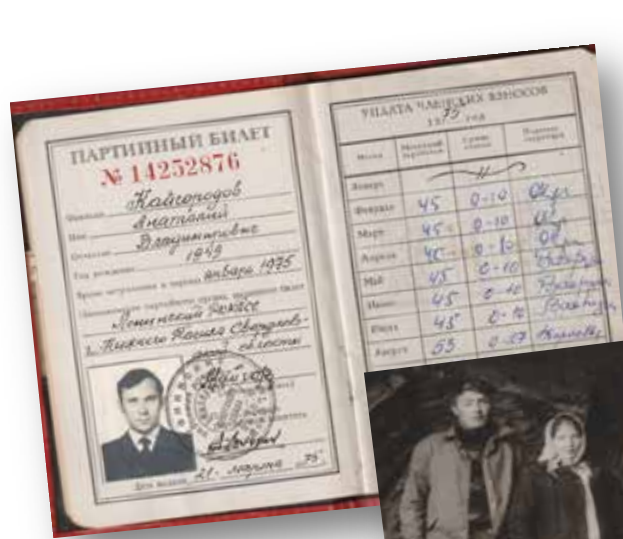 ПАРТИЙНЫЙ БИЛЕТ
№ 14252876
Фамилия Кайгородов
Имя Анатолий
Отчество Владимирович
Год рождения 1949
Время вступления в партию январь 1975
Наименование партийного органа, выдавшего билет
Ленинский
г. Нижнего Тагила Свердлов-
ской области
Дата выдачи 21 75
УПЛАТА ЧЛЕНСКИХ ВЗНОСОВ
1975 ГОД
Месяц Месячный заработок Сумма взноса Подпись секретаря
Январь
Февраль 45 0-10
Март 45 0-10
Апрель 45 0-10
Май 45 0-10
Июнь 45 0-10
Июль 45 0-10
Август 55